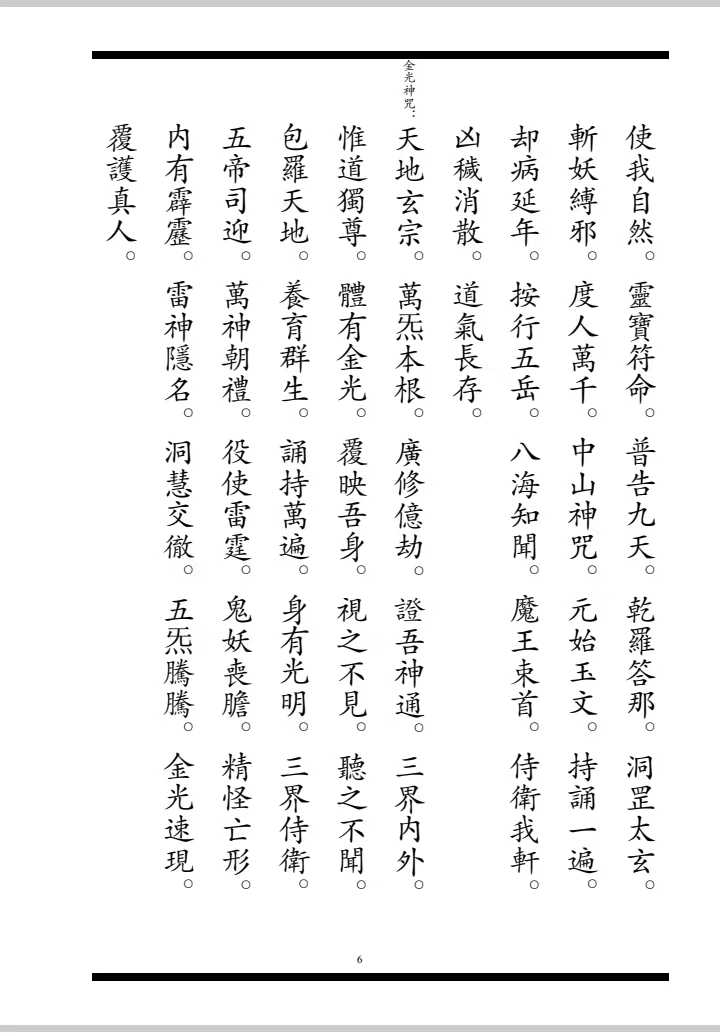 使我自然。靈寶符命。普告九天。乾羅答那。洞罡太玄。
斬妖縛邪。度人萬千。中山神咒。元始玉文。持誦一遍。
却病延年。按行五岳。八海知聞。魔王束首。侍衛我軒。
凶穢消散。道氣長存。
金光神咒：
天地玄宗。萬炁本根。廣修億劫。證吾神通。三界內外。
惟道獨尊。體有金光。覆映吾身。視之不見。聽之不聞。
包羅天地。養育群生。誦持萬遍。身有光明。三界侍衛。
五帝司迎。萬神朝禮。役使雷霆。鬼妖喪膽。精怪亡形。
内有霹靂。雷神隱名。洞慧交徹。五炁騰騰。金光速現。
覆護真人。
6